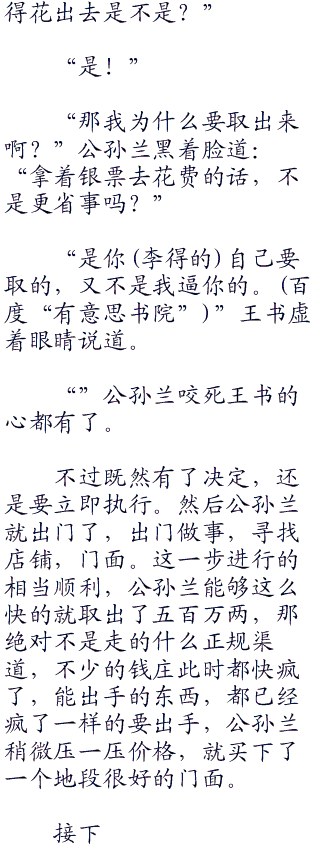 得花出去是不是？”
“是！”
“那我为什么要取出来
啊？”公孙兰黑着脸道：
“拿着银票去花费的话，不
是更省事吗？”
“是你(李得的)自己要
取的，又不是我逼你的。(百
度“有意思书院”)”王书虚
着眼睛说道。
“”公孙兰咬死王书的
心都有了。
不过既然有了决定，还
是要立即执行。然后公孙兰
就出门了，出门做事，寻找
店铺，门面。这一步进行的
相当顺利，公孙兰能够这么
快的就取出了五百万两，那
绝对不是走的什么正规渠
道，不少的钱庄此时都快疯
了，能出手的东西，都已经
疯了一样的要出手，公孙兰
稍微压一压价格，就买下了
一个地段很好的门面。
接下